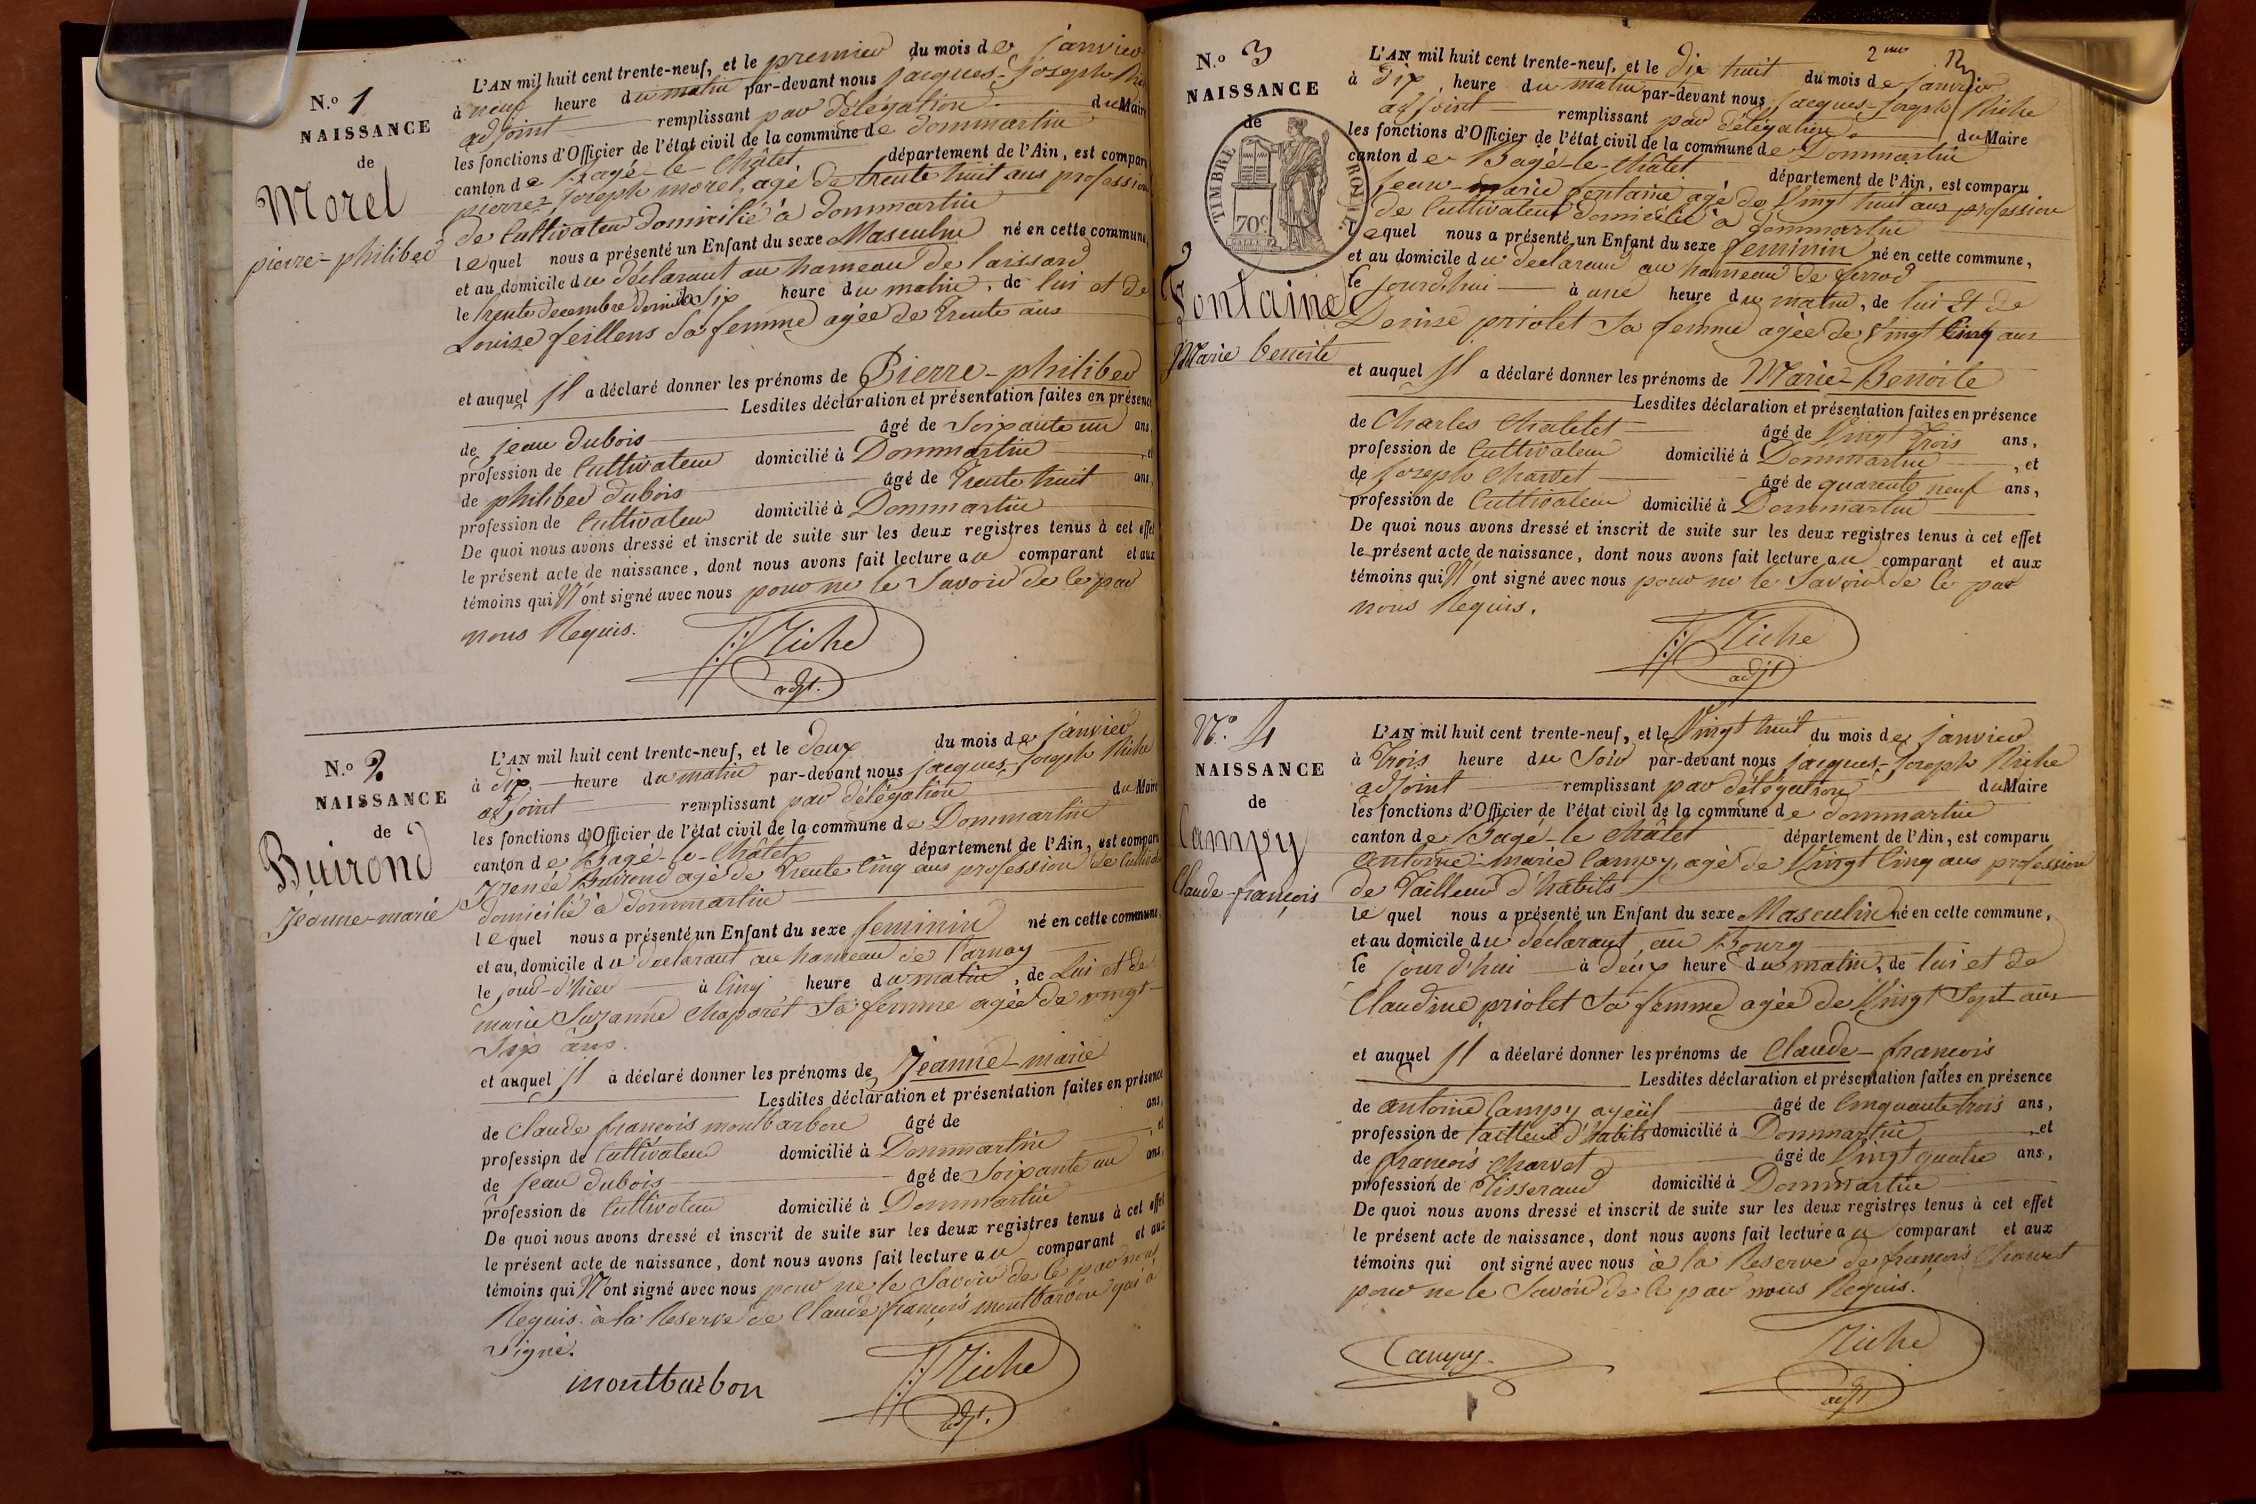 N.o 1
NAISSANCE
de
Morel
pierre-philiber
L'AN mil huit cent trente-neuf, et le premier du mois de janvier
à neuf heure du matin par-devant nous jacques-joseph
adjoint remplissant par délégation du Maire
les fonctions d'Officier de l'état civil de la commune de dommartin
canton de Bagé-le-Châtet département de l'Ain, est comparu
pierre-joseph morel, agé de trente huit ans profession
de Cultivateur domicilié à dommartin
lequel nous a présenté un Enfant du sexe Masculin né en cette commune,
et au domicile du déclarant au hameau de
le trente decembre dernier à Six heure du matin, de lui et de
Louise feillens Sa femme agée de trente ans
et auquel Il a déclaré donner les prénoms de Pierre-philiber
Lesdites déclaration et présentation faites en présence
de jean dubois âgé de Soixante un ans,
profession de Cultivateur domicilié à Dommartin, et
de philiber dubois âgé de trente huit ans,
profession de Cultivateur domicilié à Dommartin
De quoi nous avons dressé et inscrit de suite sur les deux registres tenus à cet effet
le présent acte de naissance, dont nous avons fait lecture au comparant et aux
témoins qui N'ont signé avec nous pour ne le Savoir de ce par
nous Requis.
Riche
adjt.
N.o 2
NAISSANCE
de
Buirond
Jeanne-marie
L'AN mil huit cent trente-neuf, et le deux du mois de janvier
à dix heure du matin par-devant nous jacques-joseph Riche
adjoint remplissant par délégation du Maire
les fonctions d'Officier de l'état civil de la commune de Dommartin
canton de Bagé-le-Châtet département de l'Ain, est comparu
Irenée Buirond agé de trente Cinq ans profession de
domicilié à dommartin
lequel nous a présenté un Enfant du sexe feminin né en cette commune,
et au domicile du déclarant au hameau de
le jour-d'hier à Cinq heure du matin, de Lui et de
marie Suzanne Sa femme agée de vingt
Six ans.
et auquel Il a déclaré donner les prénoms de Jeanne-marie
Lesdites déclaration et présentation faites en présence
de Claude françois montbarbon âgé de ans,
profession de Cultivateur domicilié à Dommartin, et
de jean dubois âgé de Soixante un ans,
profession de Cultivateur domicilié à Dommartin
De quoi nous avons dressé et inscrit de suite sur les deux registres tenus à cet effet
le présent acte de naissance, dont nous avons fait lecture au comparant et aux
témoins qui N'ont signé avec nous pour ne le Savoir de ce par nous
Requis. à la Reserve de Claude françois montbarbon qui a
Signé.
montbarbon
Riche
adjt.
N.o 3
NAISSANCE
de
TIMBRE ROYAL
70c
Fontaine
Marie benoite
L'AN mil huit cent trente-neuf, et le dix huit du mois de janvier
à dix heure du matin par-devant nous jacques-joseph Riche
adjoint remplissant par délégation du Maire
les fonctions d'Officier de l'état civil de la commune de Dommartin
canton de Bagé-le-Châtet département de l'Ain, est comparu
jean-marie fontaine agé de Vingt huit ans profession
de Cultivateur domicilié à dommartin
Lequel nous a présenté un Enfant du sexe feminin né en cette commune,
et au domicile du declarant au hameau de
le jourd'hui à une heure du matin, de lui et de
Denise priolet Sa femme agée de Vingt Cinq ans
et auquel Il a déclaré donner les prénoms de Marie-Benoite
Lesdites déclaration et présentation faites en présence
de Charles Chatelet âgé de Vingt trois ans,
profession de Cultivateur domicilié à Dommartin, et
de joseph Charvet âgé de quarante neuf ans,
profession de Cultivateur domicilié à Dommartin
De quoi nous avons dressé et inscrit de suite sur les deux registres tenus à cet effet
le présent acte de naissance, dont nous avons fait lecture au comparant et aux
témoins qui N'ont signé avec nous pour ne le Savoir de ce par
nous Requis.
Riche
adjt
N.o 4
NAISSANCE
de
Campy
Claude-françois
L'AN mil huit cent trente-neuf, et le Vingt huit du mois de janvier
à Trois heure du Soir par-devant nous jacques-joseph Riche
adjoint remplissant par délégation du Maire
les fonctions d'Officier de l'état civil de la commune de dommartin
canton de Bagé-le-Châtet département de l'Ain, est comparu
antoine-marie Campy, agé de Vingt Cinq ans profession
de Tailleur d'habits
le quel nous a présenté un Enfant du sexe Masculin né en cette commune,
et au domicile du déclarant, au Bourg
le jour d'hui à deux heure du matin, de lui et de
Claudine priolet Sa femme agée de Vingt Sept ans
et auquel Il a déclaré donner les prénoms de Claude-françois
Lesdites déclaration et présentation faites en présence
de antoine Campy ayeul âgé de Cinquante trois ans,
profession de tailleur d'habits domicilié à Dommartin, et
de françois Charvet âgé de Vingt quatre ans,
profession de Tisserand domicilié à Dommartin
De quoi nous avons dressé et inscrit de suite sur les deux registres tenus à cet effet
le présent acte de naissance, dont nous avons fait lecture au comparant et aux
témoins qui ont signé avec nous à la Reserve de françois Charvet
pour ne le Savoir de ce par nous Requis.
Campy
Riche
adjt